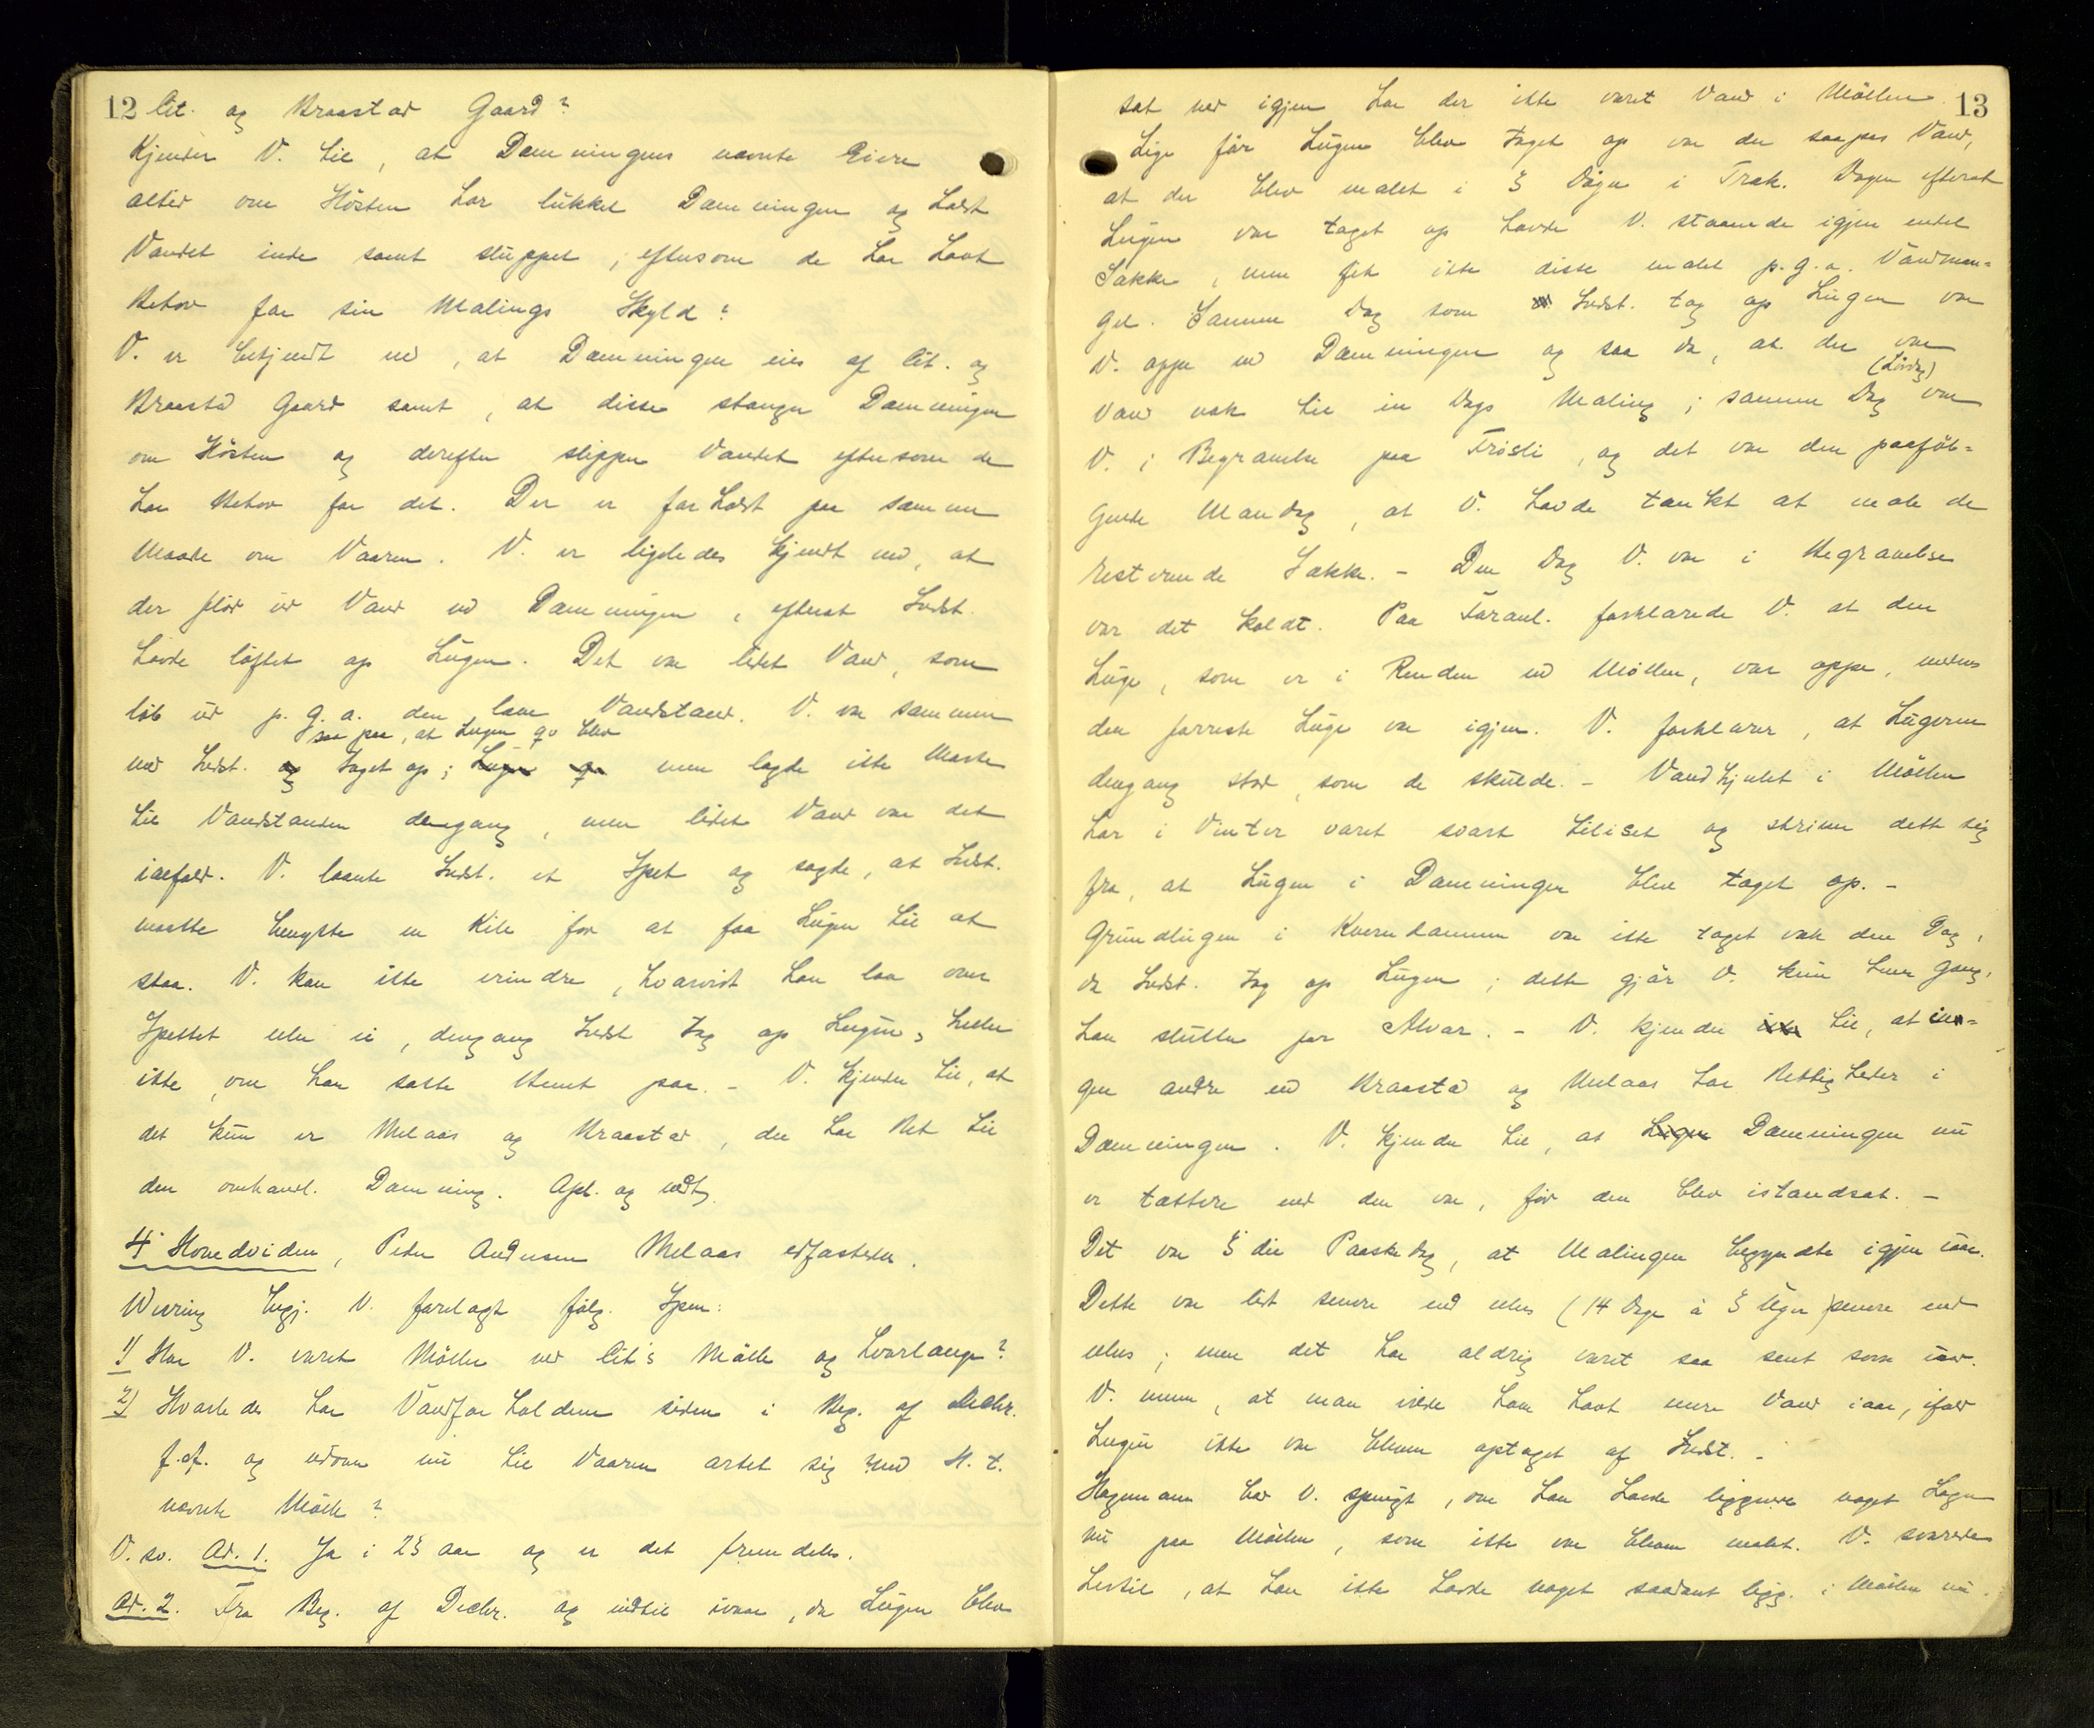 12 Cit. og Kraastad Gaard?
Kjender V. til, at Dæmningens nævnte Eiere
altid om Hösten har lukket Dæmningen og holdt
Vandet inde samt sluppet, eftersom de har havt
Behov for sin Malings Skyld?
V. er bekjendt med, at Dæmningen eies af Cit. og
Kraastad Gaard samt, at disse stænger Dæmningen
om Hösten og derefter slipper Vandet eftersom de
har Behov for det. Der er forholdt paa samme
Maade om Vaaren. V. er ligeledes kjendt med, at
der flöd ud Vand ved Dæmningen, efterat Indst.
havde löftet op Lugen. Det var lidet Vand, som
löb ud p. g. a. den lave Vandstand. V. var sammen
saa paa, at Lugen blev
med Indst. og taget op; Lugen men lagde ikke Mærke
til Vandstanden dengang, men lidet Vand var det
ialfald. V. laante Indst. et Spet og sagde, at Indst.
maatte benytte en Kile for at faa Lugen til at
staa. V. kan ikke erindre, hvorvidt han laa over
Spettet eller ei, dengang Indst tog op Lugen, heller
ikke, om han satte Klemt paa. – V. kjender til, at
det kun er Melaas og Kraastad, der har Ret til
den omhandl. Dæmning. Opl. og vedt.
4 Hovedvidne, Peder Andersen Melaas edfæstedes.
Wessing begj. V. forelagt fölg. Spm:
1) Har V. været Möller ved Cit's Mölle og hvorlænge?
2) Hvorledes har Vandforholdene siden i Beg. af Decbr.
f.A. og udover nu til Vaaren artet sig med H. t.
nævnte Mölle?
V. sv. Ad. 1. Ja i 25 aar og er det fremdeles.
Ad. 2. Fra Beg. af Decbr. og indtil ivaar, da Lugen blev
13
sat ned igjen har der ikke været Vand i Möllen.
Lige för Lugen blev taget op var der saapas Vand,
at der blev malet i 3 Dögn i Træk. Dagen efterat
Lugen var taget op havde V. staaende igjen endel
Sække, men fik ikke disse malet p. g. a. Vandman=
gel. Samme Dag som Indst. tog op Lugen var
V. oppe ved Dæmningen og saa da, at der var
(Lördag)
Vand nok til en Dags Maling; samme Dag var
V. i Begravelse paa Frösli, og det var den paaföl=
gende Mandag, at V. havde tænkt at male de
resterende Sække. – Den Dag V. var i Begravelse
var det koldt. Paa Foranl. forklarede V. at den
Luge, som er i Renden ved Möllen, var oppe, medens
den forreste Luge var igjen. V. forklarer, at Lugerne
dengang stod, som de skulde. – Vandhjulet i Möllen
har i Vinter været svært tiliset og skriver dette sig
fra, at Lugen i Dæmningen blev taget op. –
Grundlugen i Kverndammen var ikke taget væk den Dag,
da Indst. tog op Lugen; dette gjör V. kun hver Gang,
han slutter for Alvor. – V. kjender ikke til, at in=
gen andre end Kraastad og Melaas har Rettigheder i
Dæmningen. V. kjender til, at Lugen Dæmningen nu
er tættere end den var, för den blev istandsat. –
Det var 3die Paaskedag, at Malingen begyndte igjen iaar.
Dette var lidt senere end ellers (14 Dage à 3 Uger) senere end
ellers; men det har aldrig været saa sent som iaar.
V. mener, at man vilde have havt mere Vand iaar, ifald
Lugen ikke var bleven optaget af Indst. –
Hagemann bad V. spurgt, om han havde liggende noget Lager
nu paa Möllen, som ikke var bleven malet. V. svarede
hertil, at han ikke havde noget saadant ligg. i Möllen nu.